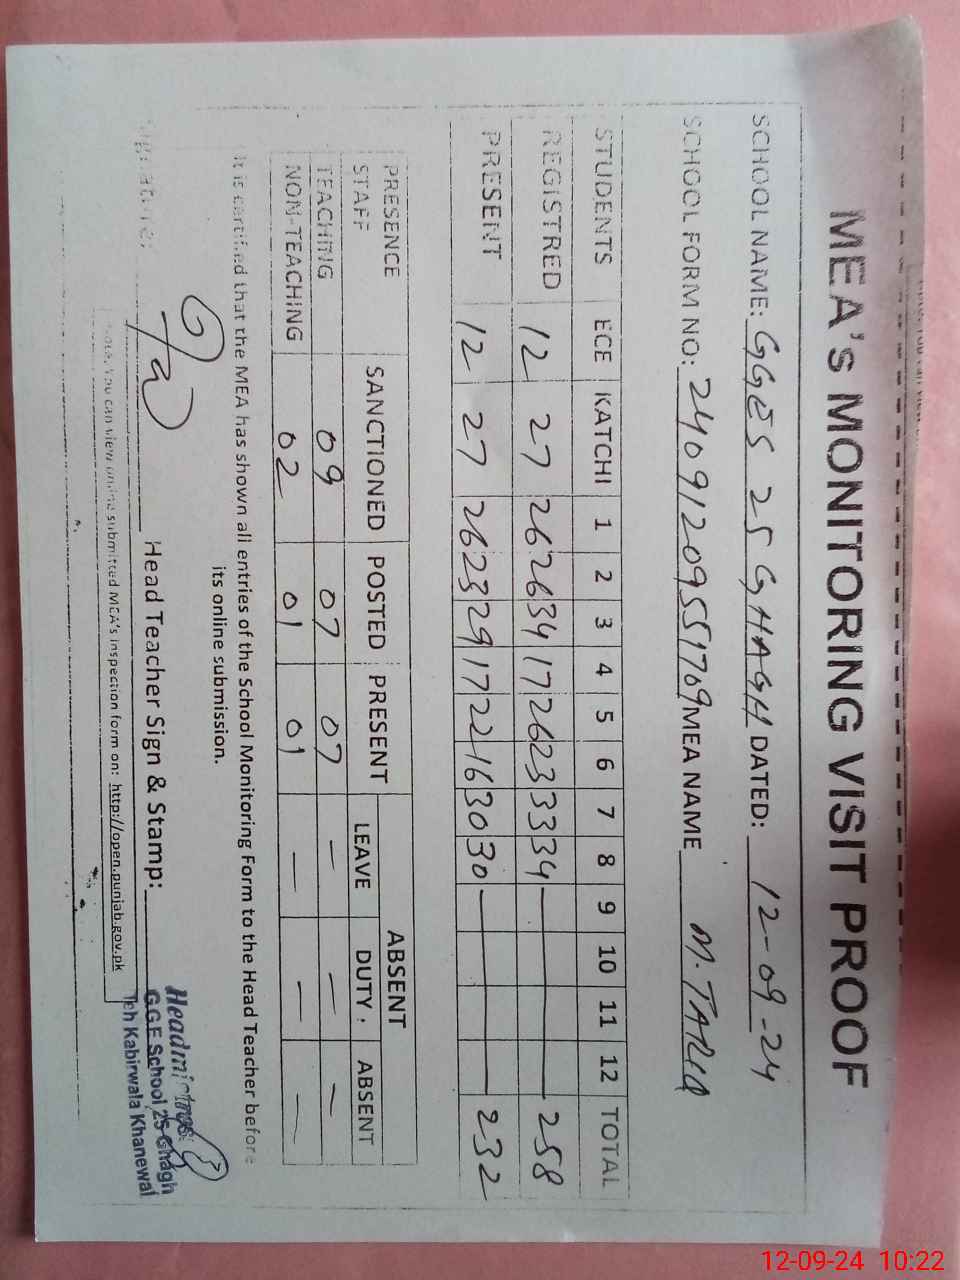 MEA's MONITORING VISIT PROOF
SCHOOL NAME: GGES 25 GHAGH DATED: 12-09-24
SCHOOL FORM NO: 24091209551709 MEA NAME M. TARIQ
STUDENTS ECE KATCHI 1 2 3 4 5 6 7 8 9 10 11 12 TOTAL
REGISTRED 12 27 26 26 34 17 26 23 33 34 — 258
PRESENT 12 27 26 23 29 17 22 16 30 30 — 232
PRESENCE ABSENT
STAFF SANCTIONED POSTED PRESENT LEAVE DUTY. ABSENT
TEACHING 09 07 07 — — —
NON-TEACHING 02 01 01 — — —
It is certified that the MEA has shown all entries of the School Monitoring Form to the Head Teacher before
its online submission.
Signature: Head Teacher Sign & Stamp:
Headmistress
GGE School 25 Ghagh
Teh Kabirwala Khanewal
Note: You can view online submitted MEA's inspection form on: http://open.punjab.gov.pk
12-09-24 10:22